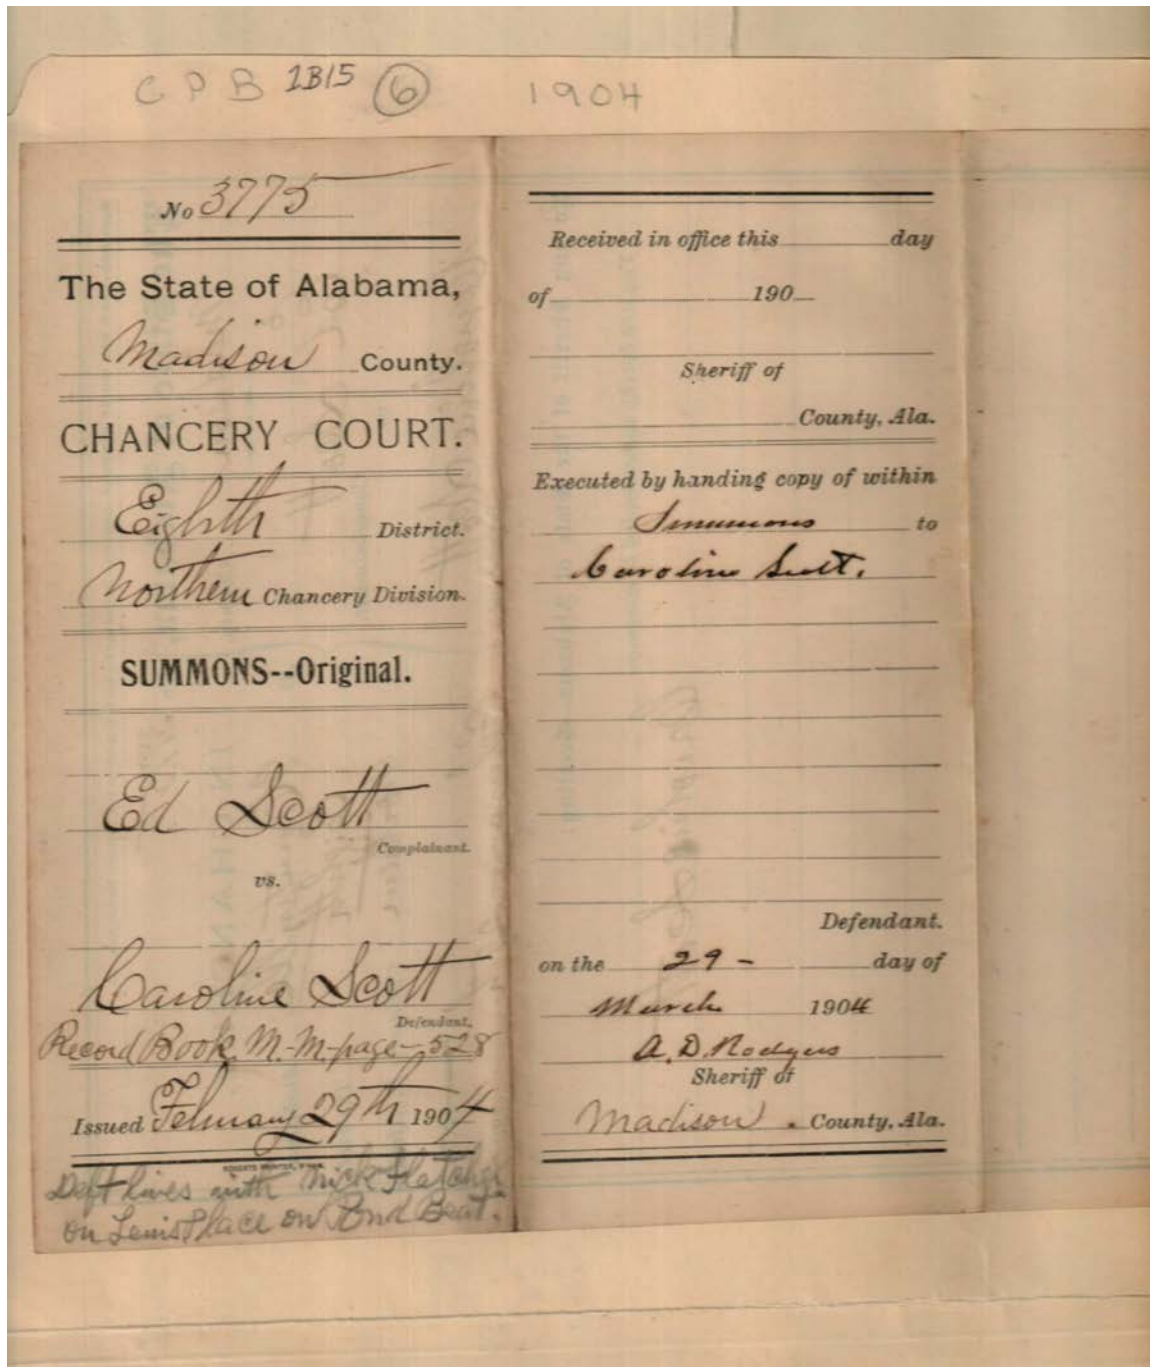 CPB 1B15 6 1904
No 3775
The State of Alabama,
Madison County.
CHANCERY COURT.
Eighth District.
Northern Chancery Division.
SUMMONS--Original.
Ed Scott
Complainant.
vs.
Caroline Scott
Defendant.
Record Book M.-M-page-528
Issued February 29th 1904
Deft lives with Nick Fletcher
on Place on Beat.
Received in office this day
of 190
Sheriff of
County, Ala.
Executed by handing copy of within
Summons to
Caroline Scott.
Defendant.
on the 29- day of
March 1904
A. D. Rodgers
Sheriff of
Madison County, Ala.